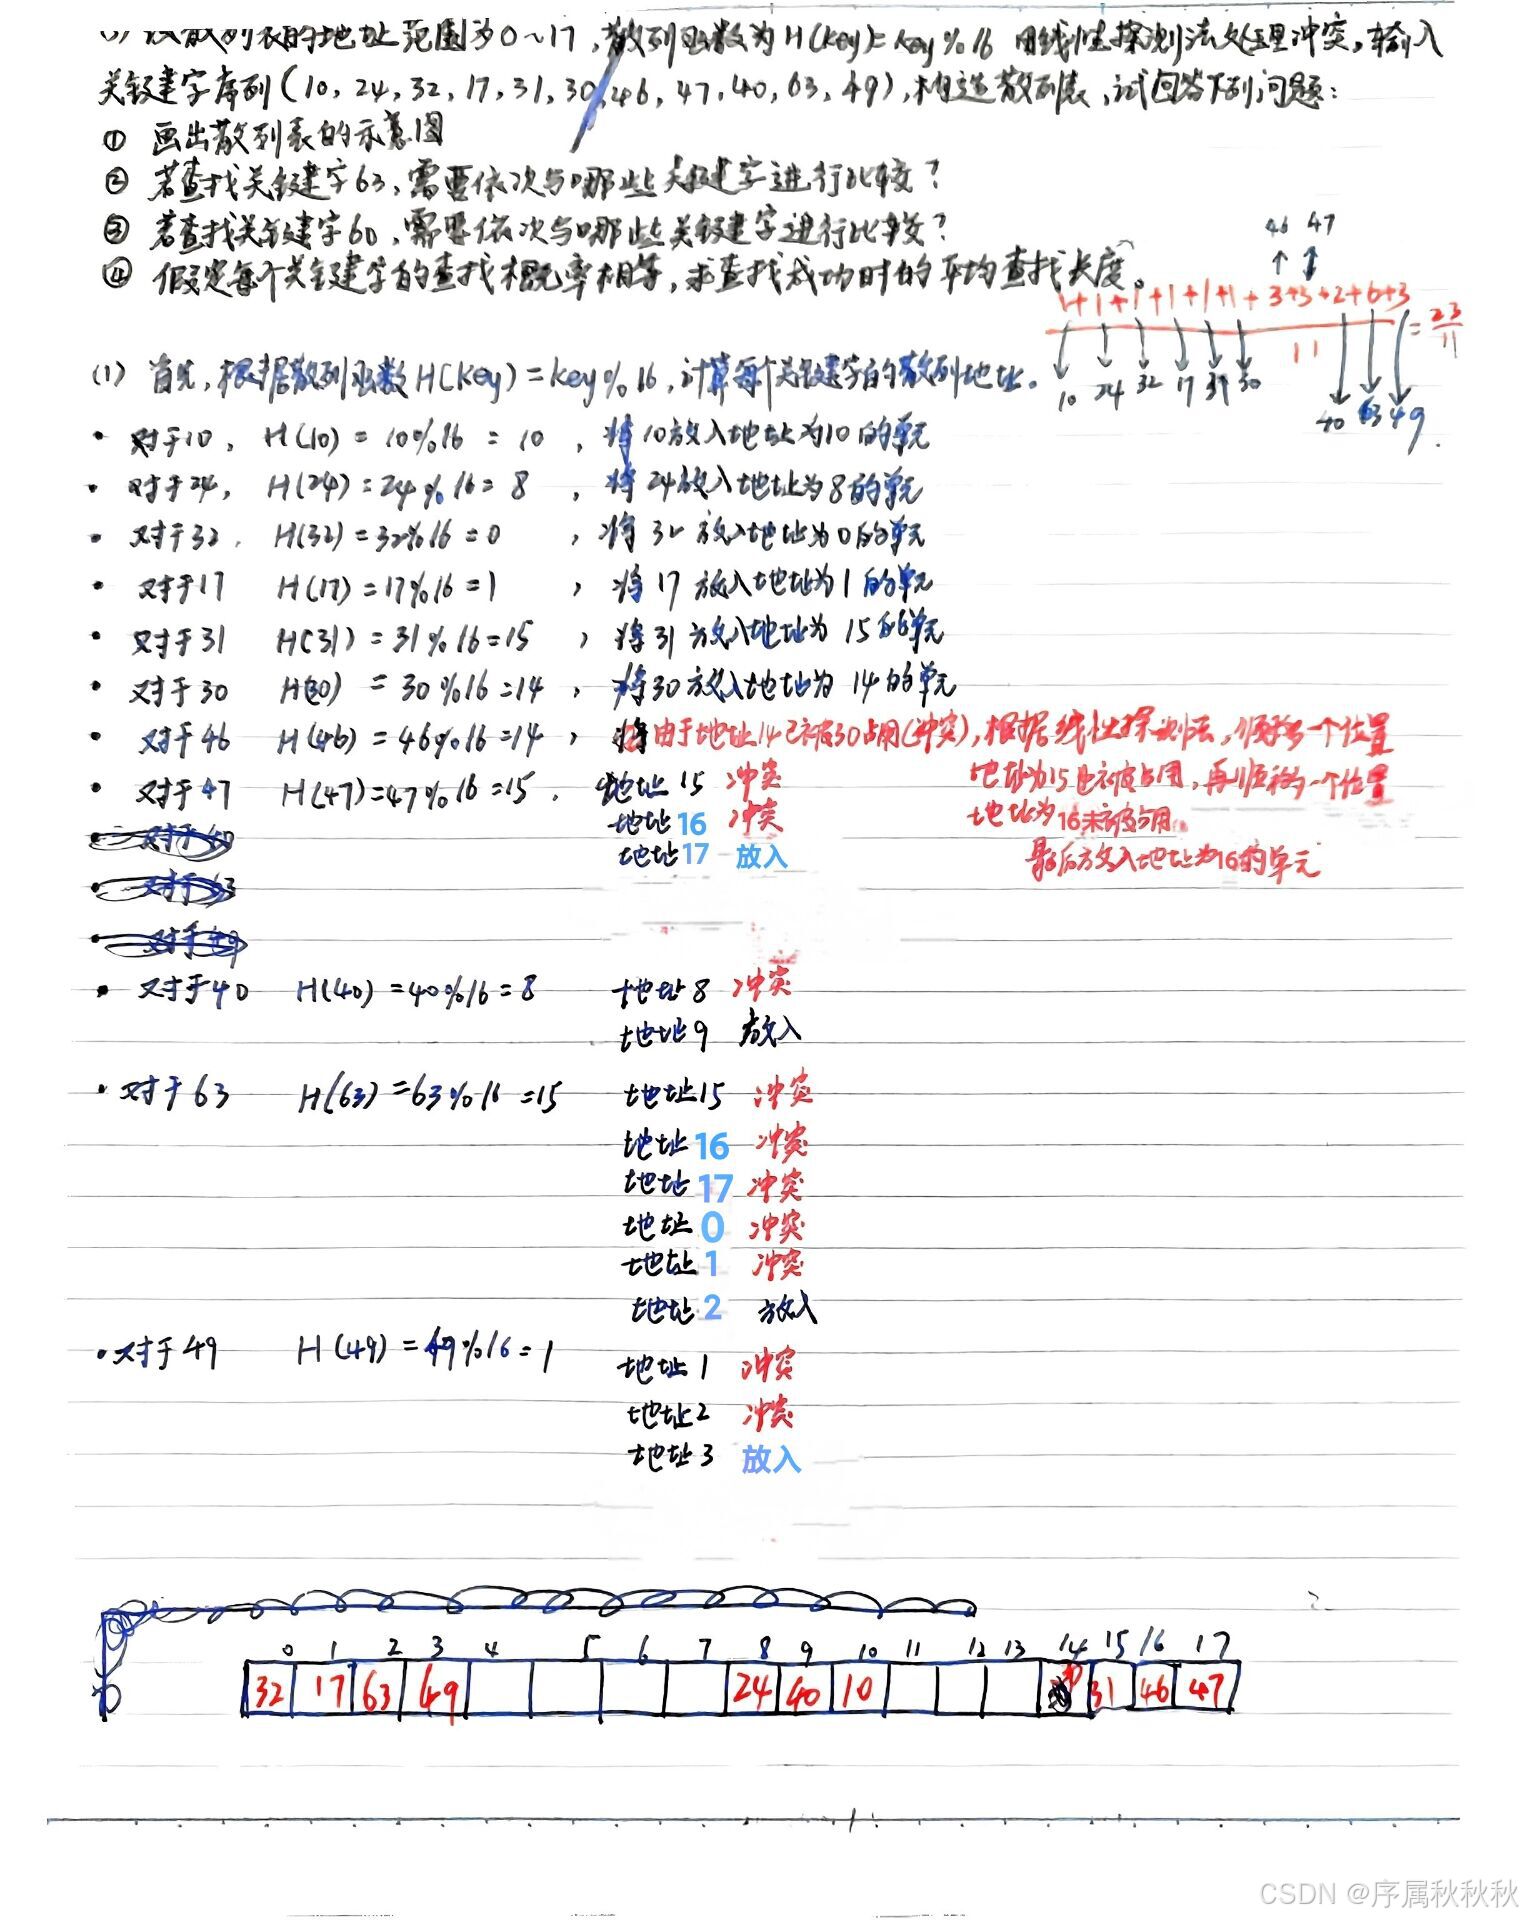 (1) 设散列表的地址范围为0~17,散列函数为H(key)=key%16 用线性探测法处理冲突,输入
关键字序列(10,24,32,17,31,30,46,47,40,63,49),构造散列表,试回答下列问题:
① 画出散列表的示意图
② 若查找关键字63,需要依次与哪些关键字进行比较?
③ 若查找关键字60,需要依次与哪些关键字进行比较?
④ 假定每个关键字的查找概率相等,求查找成功时的平均查找长度。
46 47
1+1+1+1+1+1+3+3+2+6+3
11
=23/11
10 24 32 17 31 30
40 63 49
(1) 首先,根据散列函数H(key)=key%16,计算每个关键字的散列地址.
• 对于10, H(10)=10%16=10,将10放入地址为10的单元
• 对于24, H(24)=24%16=8,将24放入地址为8的单元
• 对于32, H(32)=32%16=0,将32放入地址为0的单元
• 对于17 H(17)=17%16=1,将17放入地址为1的单元
• 对于31 H(31)=31%16=15,将31放入地址为15的单元
• 对于30 H(30)=30%16=14,将30放入地址为14的单元
• 对于46 H(46)=46%16=14,由于地址14已被30占用(冲突),根据线性探测法,顺移一个位置
地址为15也被占用,再顺移一个位置
地址为16未被占用.
最后放入地址为16的单元
• 对于47 H(47)=47%16=15. 地址15 冲突
地址16 冲突
地址17 放入
对于40
对于63
对于49
• 对于40 H(40)=40%16=8 地址8 冲突
地址9 放入
• 对于63 H(63)=63%16=15 地址15 冲突
地址16 冲突
地址17 冲突
地址0 冲突
地址1 冲突
地址2 放入
• 对于49 H(49)=49%16=1 地址1 冲突
地址2 冲突
地址3 放入
0 1 2 3 4 5 6 7 8 9 10 11 12 13 14 15 16 17
32 17 63 49 24 40 10 30 31 46 47
CSDN @序属秋秋秋